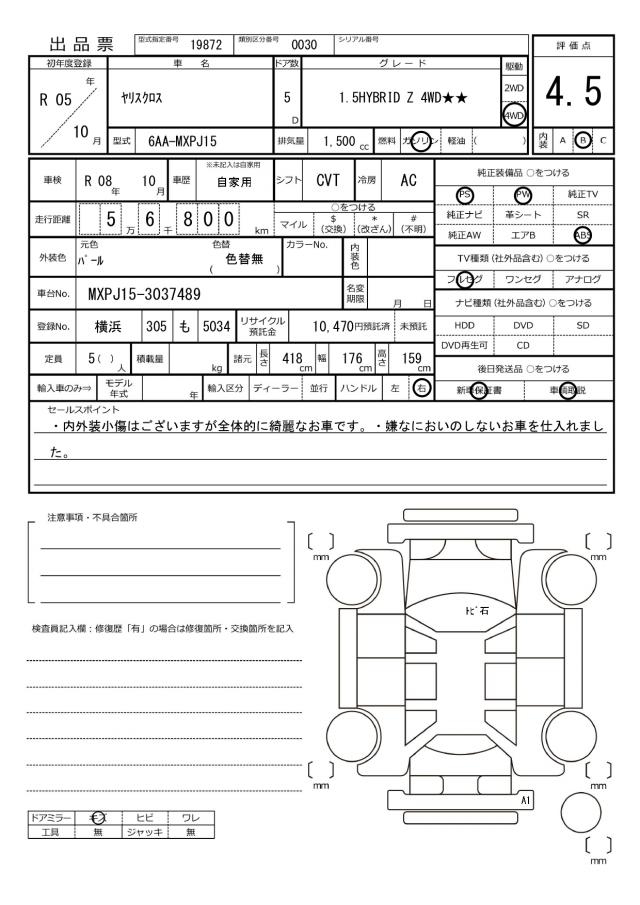 出品票 型式指定番号 19872 類別区分番号 0030 シリアル番号
評価点
4.5
内装 A B C
初年度登録 車名 ドア数 グレード 駆動
R 05 年 10 月 ﾔﾘｽｸﾛｽ 5 D 1.5HYBRID Z 4WD★★ 2WD 4WD
型式 6AA-MXPJ15 排気量 1,500 cc 燃料 ガソリン 軽油 ( )
車検 R 08 年 10 月 車歴 ※未記入は自家用 自家用 シフト CVT 冷房 AC
走行距離 5 万 6 千 8 0 0 km
○をつける
マイル $ (交換) * (改ざん) # (不明)
外装色 元色 ﾊﾟｰﾙ 色替 ( 色替無 ) カラーNo. 内装色
車台No. MXPJ15-3037489 名変期限 月 日
登録No. 横浜 305 も 5034 リサイクル預託金 10,470円預託済 未預託
定員 5( ) 人 積載量 kg 諸元 長さ 418 cm 幅 176 cm 高さ 159 cm
輸入車のみ⇒ モデル年式 年 輸入区分 ディーラー 並行 ハンドル 左 右
純正装備品 ○をつける
PS PW 純正TV
純正ナビ 革シート SR
純正AW エアB ABS
TV種類(社外品含む) ○をつける
フルセグ ワンセグ アナログ
ナビ種類(社外品含む) ○をつける
HDD DVD SD
DVD再生可 CD
後日発送品 ○をつける
新車保証書 車輌取説
セールスポイント
・内外装小傷はございますが全体的に綺麗なお車です。・嫌なにおいのしないお車を仕入れまし
た。
注意事項・不具合箇所
検査員記入欄：修復歴「有」の場合は修復箇所・交換箇所を記入
ドアミラー キズ ヒビ ワレ
工具 無 ジャッキ 無
〔 〕 mm
〔 〕 mm
ﾄﾋﾞ石
〔 〕 mm
〔 〕 mm
A1
〔 〕 mm